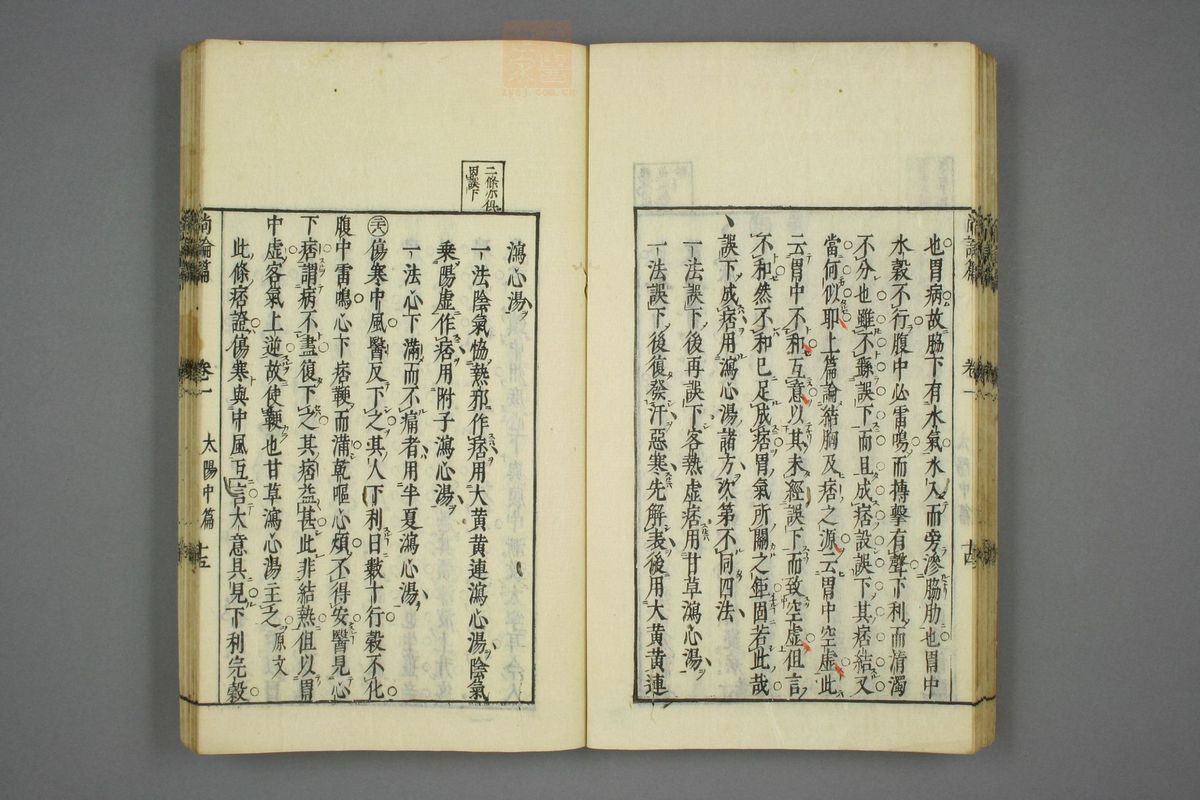 也胃病故脇下有水氣水入而旁滲脇肋也胃中
水穀不行腹中必雷鳴而搏擊有聲下利而清濁
不分也雖不繇誤下而且成痞設誤下其痞結又
當何似耶上篇論結胸及痞之源云胃中空虛此
云胃中不和互意以其未經誤下而致空虛但言
不和然不和已足成痞胃氣所關之鉅固若此哉
誤下成痞用瀉心湯諸方次第不同四法
一法誤下後再誤下客熱虛痞用甘草瀉心湯
一法誤下後復發汗惡寒先解表後用大黄黄連
尚論篇
卷一
太陽中篇
二條亦俱
因誤下
瀉心湯
一法陰氣恊熱邪作痞用大黄黄連瀉心湯陰氣
乘陽虛作痞用附子瀉心湯
一法心下滿而不痛者用半夏瀉心湯
傷寒中風醫反下之其人下利日數十行穀不化
腹中雷鳴心下痞鞕而滿乾嘔心煩不得安醫見心
下痞謂病不盡復下之其痞益甚此非結熱但以胃
中虛客氣上逆故使鞕也甘草瀉心湯主之原文
此條痞證傷寒與中風互言大意具見下利完穀
尚論篇
卷一
太陽中篇